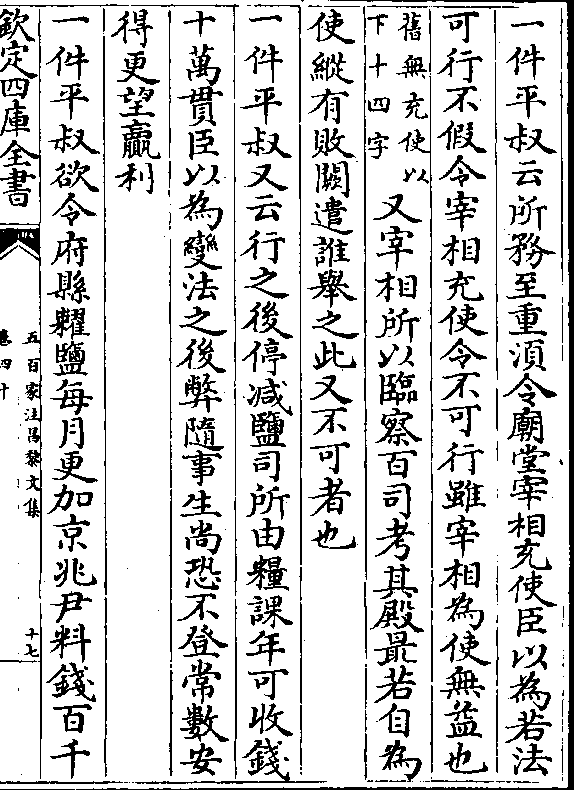 一件平叔云所務至重須令廟堂宰相充使臣以為若法
可行不假令宰相充使令不可行雖宰相為使無益也
舊無充使以
下十四字
又宰相所以臨察百司考其殿最若自為
使縱有敗闕遣誰舉之此又不可者也
一件平叔又云行之後停减鹽司所由糧課年可收錢
十萬貫臣以為變法之後弊隨事生尚恐不登常數安
得更望贏利
一件平叔欲令府縣糶鹽每月更加京兆尹料錢百千
欽定四庫全書
五百家注昌黎文集
卷四十
十七